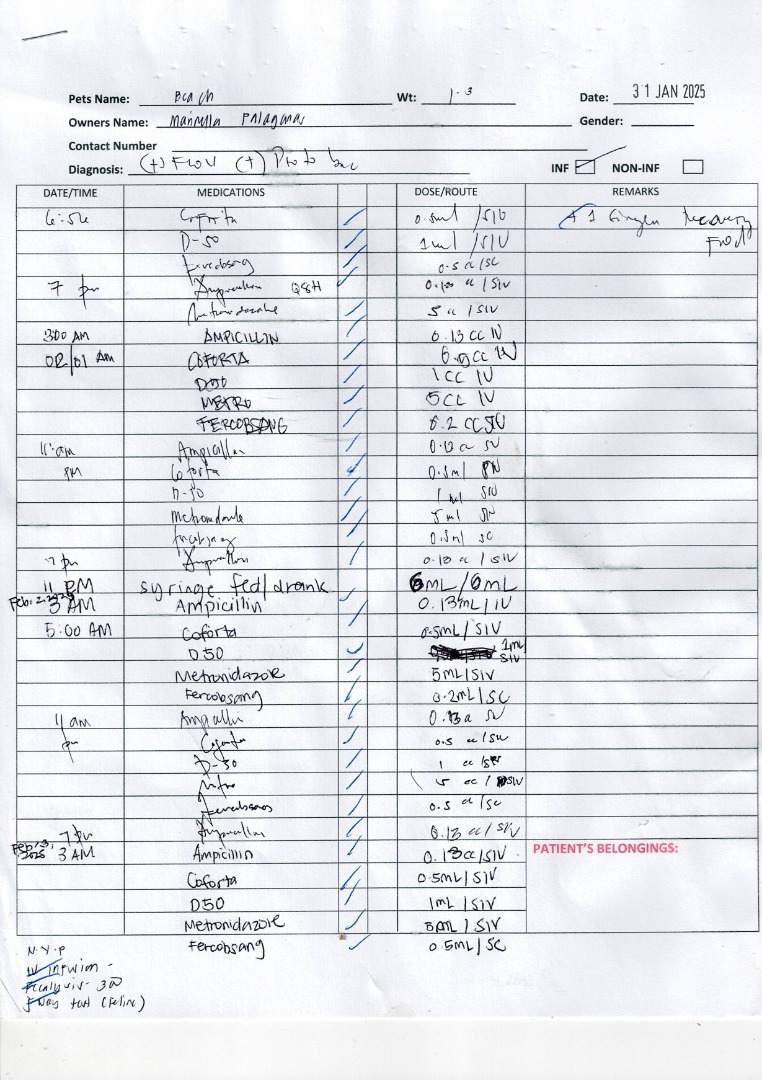 Pets Name: Wt: 1.3 Date: 31 JAN 2025
Owners Name: Gender:
Contact Number
Diagnosis: (+) (+) Proto INF NON-INF
DATE/TIME MEDICATIONS DOSE/ROUTE REMARKS
6:56 Coforta 0.5ml /SIV + 1 recovery
D-50 1ml /SIV Food
Fercobsang 0.5 cc /SC
7 pm Ampicillin Q8H 0.13 cc /SIV
Metronidazole 5 cc /SIV
3:00 AM AMPICILLIN 0.13 CC IV
02/01 AM COFORTA CC IV
D50 1CC IV
METRO 5CC IV
FERCOBSANG 0.2 CC
11:am Ampicillin 0.13 cc SIV
pm Coforta 0.5ml
D-50 1 ml SIV
Metronidazole 5ml
Fercobsang 0.5ml SC
7 pm Ampicillin 0.13 cc / SIV
11 PM syringe fed/drank 6mL/6mL
Feb. 2, 2025
3 AM Ampicillin 0.13mL/IV
5:00 AM Coforta 0.5mL/SIV
D50 1mL SIV
Metronidazole 5mL/SIV
Fercobsang 0.2mL/SC
11 am Ampicillin 0.13cc SIV
pm Coforta 0.5 cc /SIV
D-50 1 cc /SIV
Metro 5 cc / SIV
Fercobsang 0.5 cc /SC
7 pm Ampicillin 0.13 cc / SIV
Feb. 3, 2025
3 AM Ampicillin 0.13cc/SIV PATIENT'S BELONGINGS:
Coforta 0.5mL/SIV
D50 1mL/SIV
Metronidazole 5mL / SIV
Fercobsang 0.5mL/SC
N.Y.P
IV infusion -
Fecalysis - 300
5 way test (Feline)